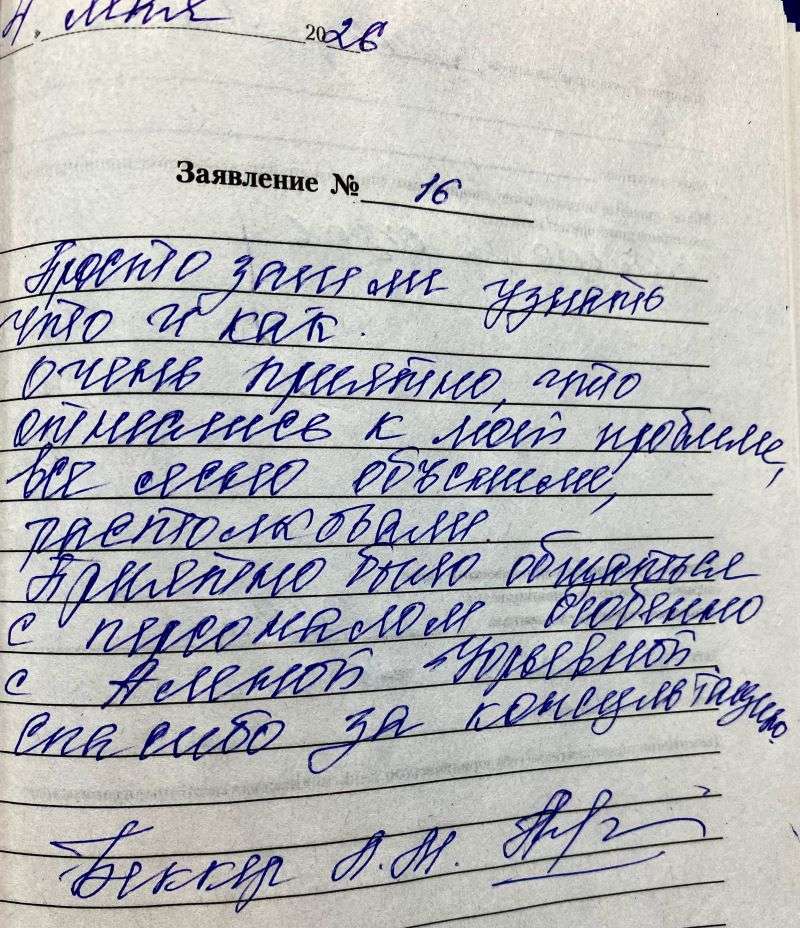 мая 2026
Заявление № 16
Просто зашли узнать
что и как.
очень приятно, что
отнеслись к моей проблеме,
все ясно объяснили,
растолковали.
Приятно было общаться
с персоналом особенно
с Аленой Юрьевной
спасибо за консультацию.
Беккер А.М.